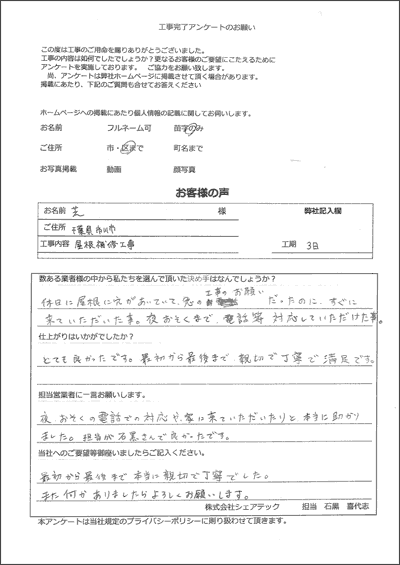 工事完了アンケートのお願い
この度は工事のご用命を賜りありがとうございました。
工事の内容は如何でしたでしょうか？更なるお客様のご要望にこたえるために
アンケートを実施しております。　ご協力をお願い致します。
尚、アンケートは弊社ホームページに掲載させて頂く場合があります。
掲載にあたり、下記のご質問も合せてお答えください
ホームページへの掲載にあたり個人情報の記載に関してお伺いします。
お名前　フルネーム可　苗字のみ
ご住所　市・区まで　町名まで
お写真掲載　動画　顔写真
お客様の声
お名前　芝　様　弊社記入欄
ご住所　千葉県市川市
工事内容　屋根補修工事　工期　3日
数ある業者様の中から私たちを選んで頂いた決め手はなんでしょうか？
工事のお願い
休日に屋根に穴があいていて、急の だったのに、すぐに
来ていただいた事。夜おそくまで、電話等 対応していただけた事。
仕上がりはいかがでしたか？
とても良かったです。最初から最後まで、親切で丁寧で 満足です。
担当営業者に一言お願いします。
夜おそくの電話での対応や、家に来ていただいたりと 本当に助かり
ました。担当が石黒さんで良かったです。
当社へのご要望等御座いましたらご記入ください。
最初から最後まで 本当に親切で丁寧でした。
また何かありましたらよろしくお願いします。
株式会社シェアテック　担当　石黒　喜代志
本アンケートは当社規定のプライバシーポリシーに則り扱わせて頂きます。